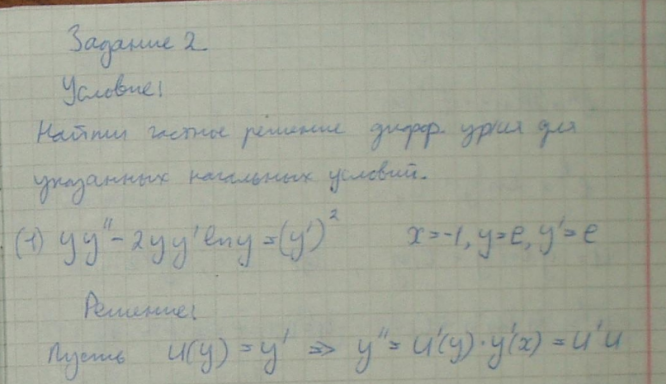 Задание 2
Условие:
Найти частное решение дифф. ур-ия для
указанных начальных условий.
(1) yy'' - 2yy' ln y = (y')² x=-1, y=e, y'=e
Решение:
Пусть u(y) = y' ⇒ y'' = u'(y)·y'(x) = u'u